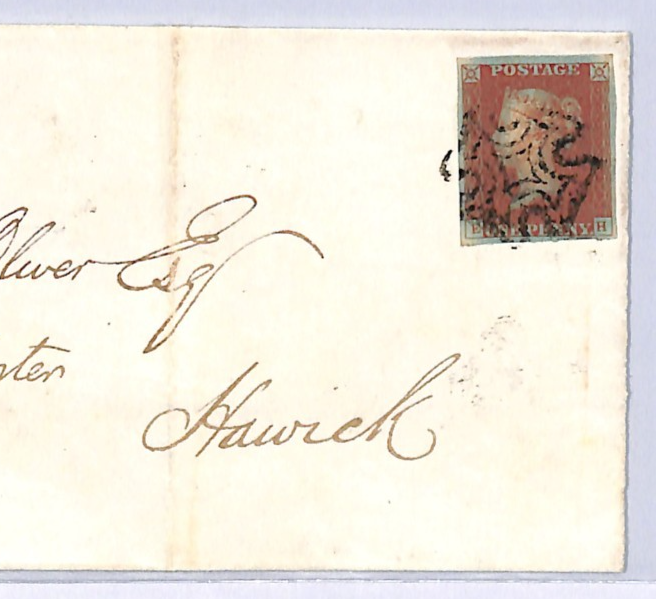 POSTAGE
E ONE PENNY H
Oliver Esq
Hawick